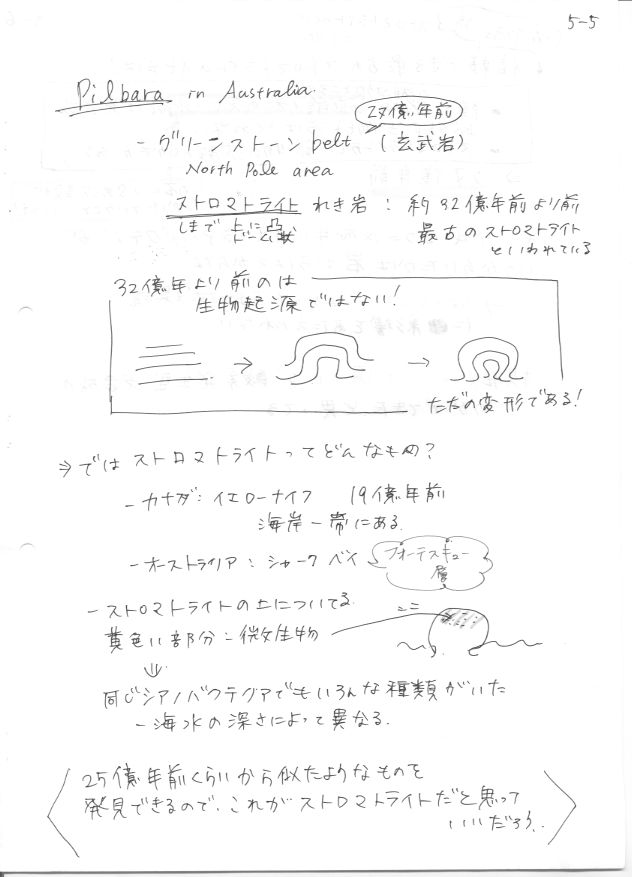 5-5
Pilbara in Australia.
27億年前
- グリーンストーン belt (玄武岩)
North Pole area
ストロマトライト れき岩 : 約32億年前より前
しまで 上に凸 ドーム状
最古のストロマトライト
といわれている
32億年より前のは
生物起源ではない!
→ →
ただの変形である!
⇒ では ストロマトライトってどんなもの?
- カナダ : イエローナイフ 19億年前
海岸一帯にある.
- オーストラリア : シャーク ベイ
フォーテスキュー
層
- ストロマトライトの上についてる
ここ
黄色い部分 = 微生物
⇓
同じシアノバクテリアでもいろんな種類がいた
- 海水の深さによって異なる.
25億年前くらいから似たようなものを
発見できるので、これがストロマトライトだと思って
いいだろう..